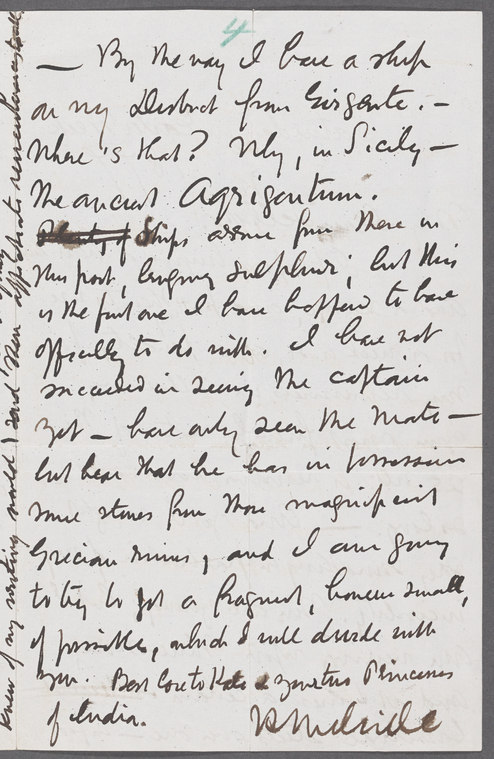 4
— By the way I have a ship
on my District from Girgente. —
Where 's that? Why, in Sicily —
the ancient Agrigentum.
Plenty of Ships arrive from there in
this port, bringing sulphur; but this
is the first one I have happened to have
officially to do with. I have not
succeeded in seeing the captain
yet — have only seen the mate —
but hear that he has in possession
some stones from those magnificent
Grecian ruins, and I am going
to try to get a fragment, however small,
if possible, which I will divide with
you. Best love to Kate & your two Princesses
of India. H Melville
knew of my writing would send their affectionate remembrances